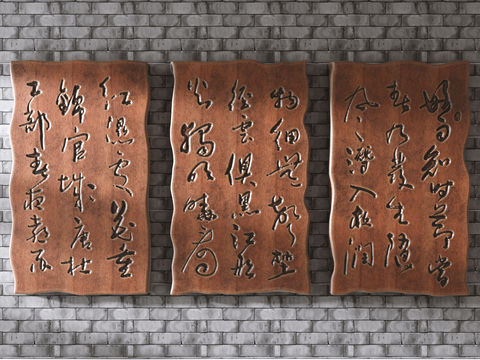 好雨知時節當
春乃發生隨
風潛入夜潤
物細無聲野
徑雲俱黑江船
火獨明曉看
紅濕處花重
錦官城唐杜
工部春夜喜雨